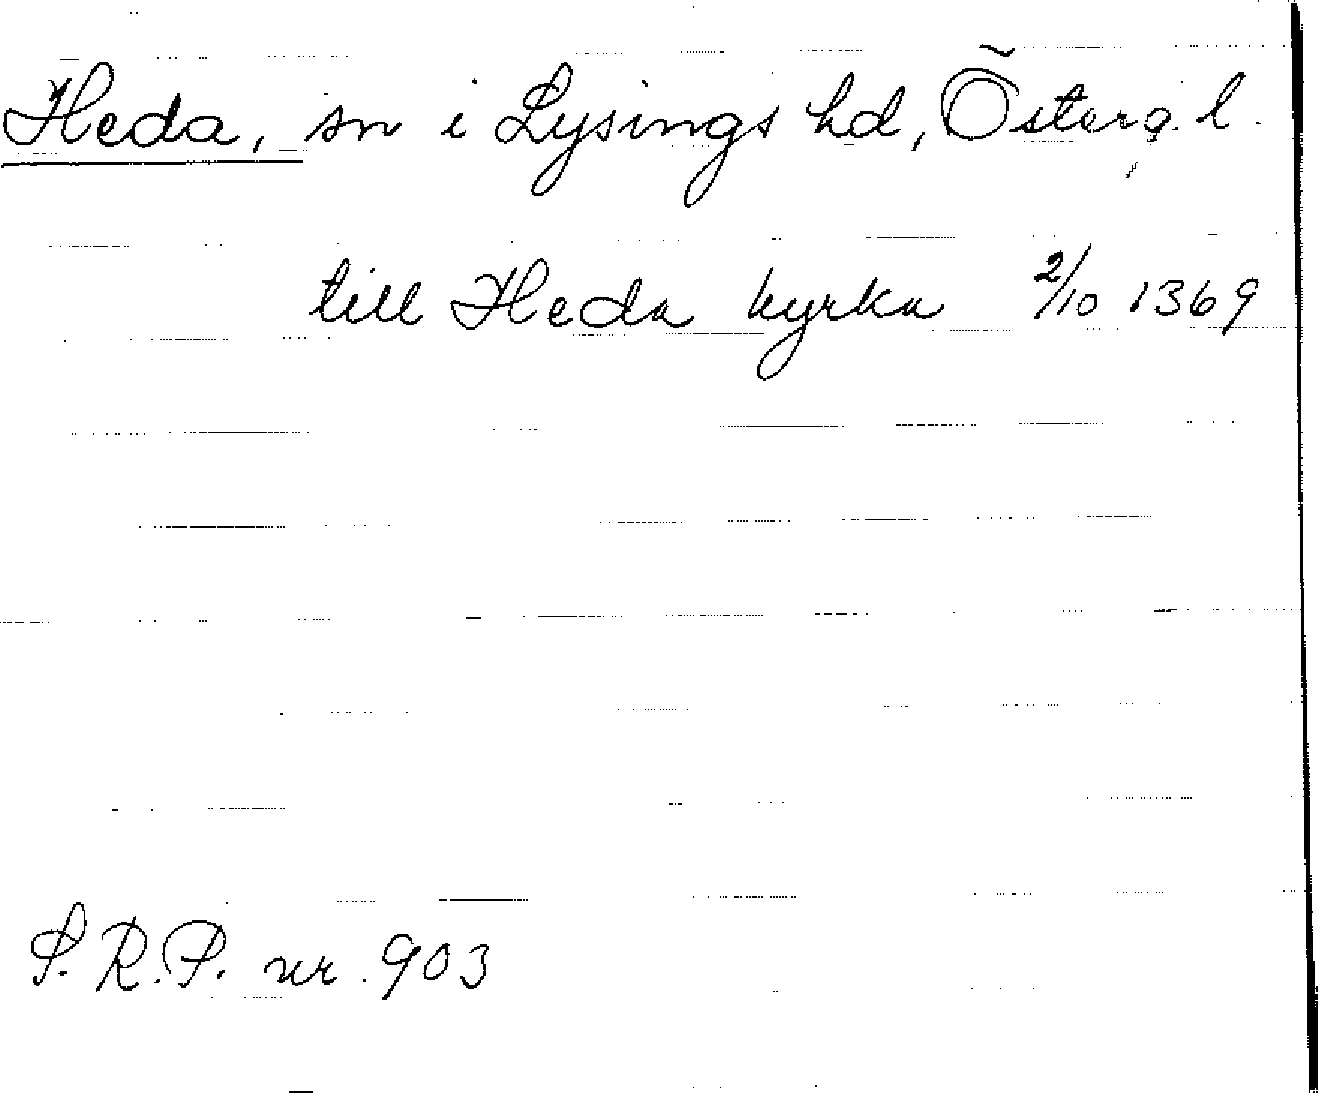 Heda, sn i Lysings hd, Österg. l.
till Heda kyrka 2/10 1369
S.R.P. nr. 903